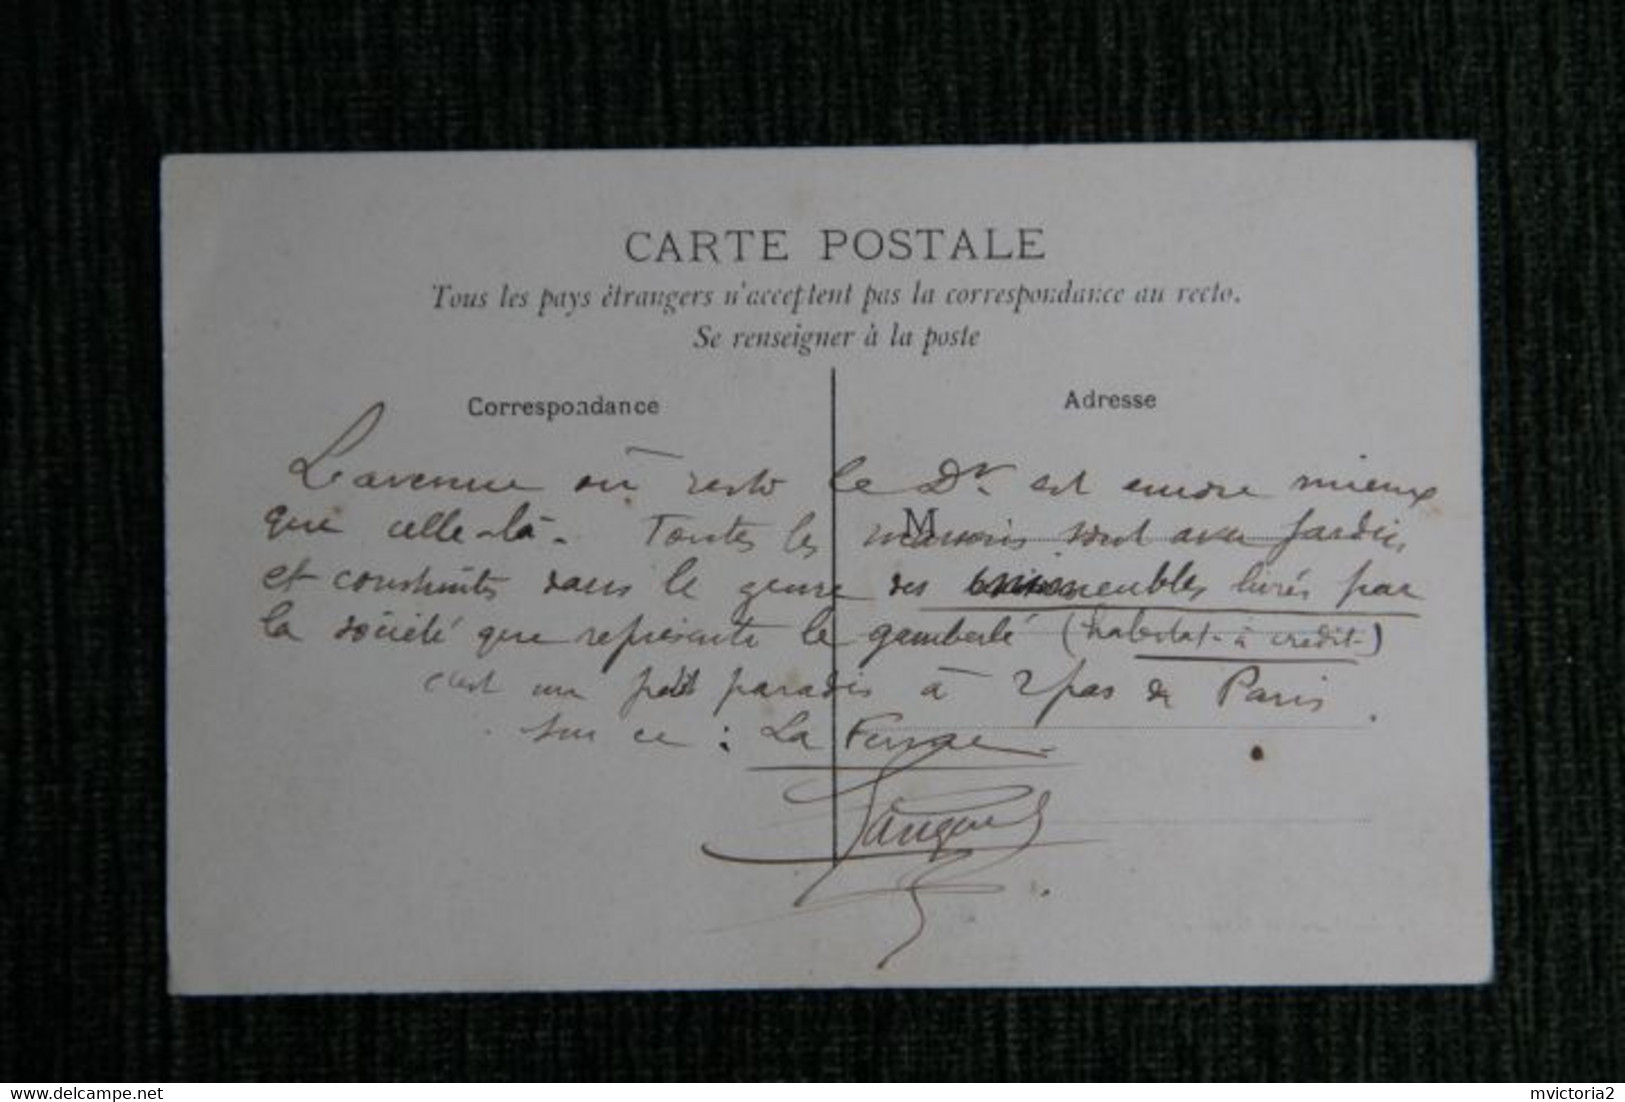 CARTE POSTALE
Tous les pays étrangers n'acceptent pas la correspondance au recto.
Se renseigner à la poste
Correspondance
Adresse
M
L'avenue où reste le Dr. est encore mieux
que celle-là. Toutes les maisons sont avec jardin
et construites dans le genre des immeubles livrés par
la société que représente le gamberlé (habitat à crédit)
c'est un petit paradis à 2 pas de Paris.
sur ce : La Ferme
mvictoria2